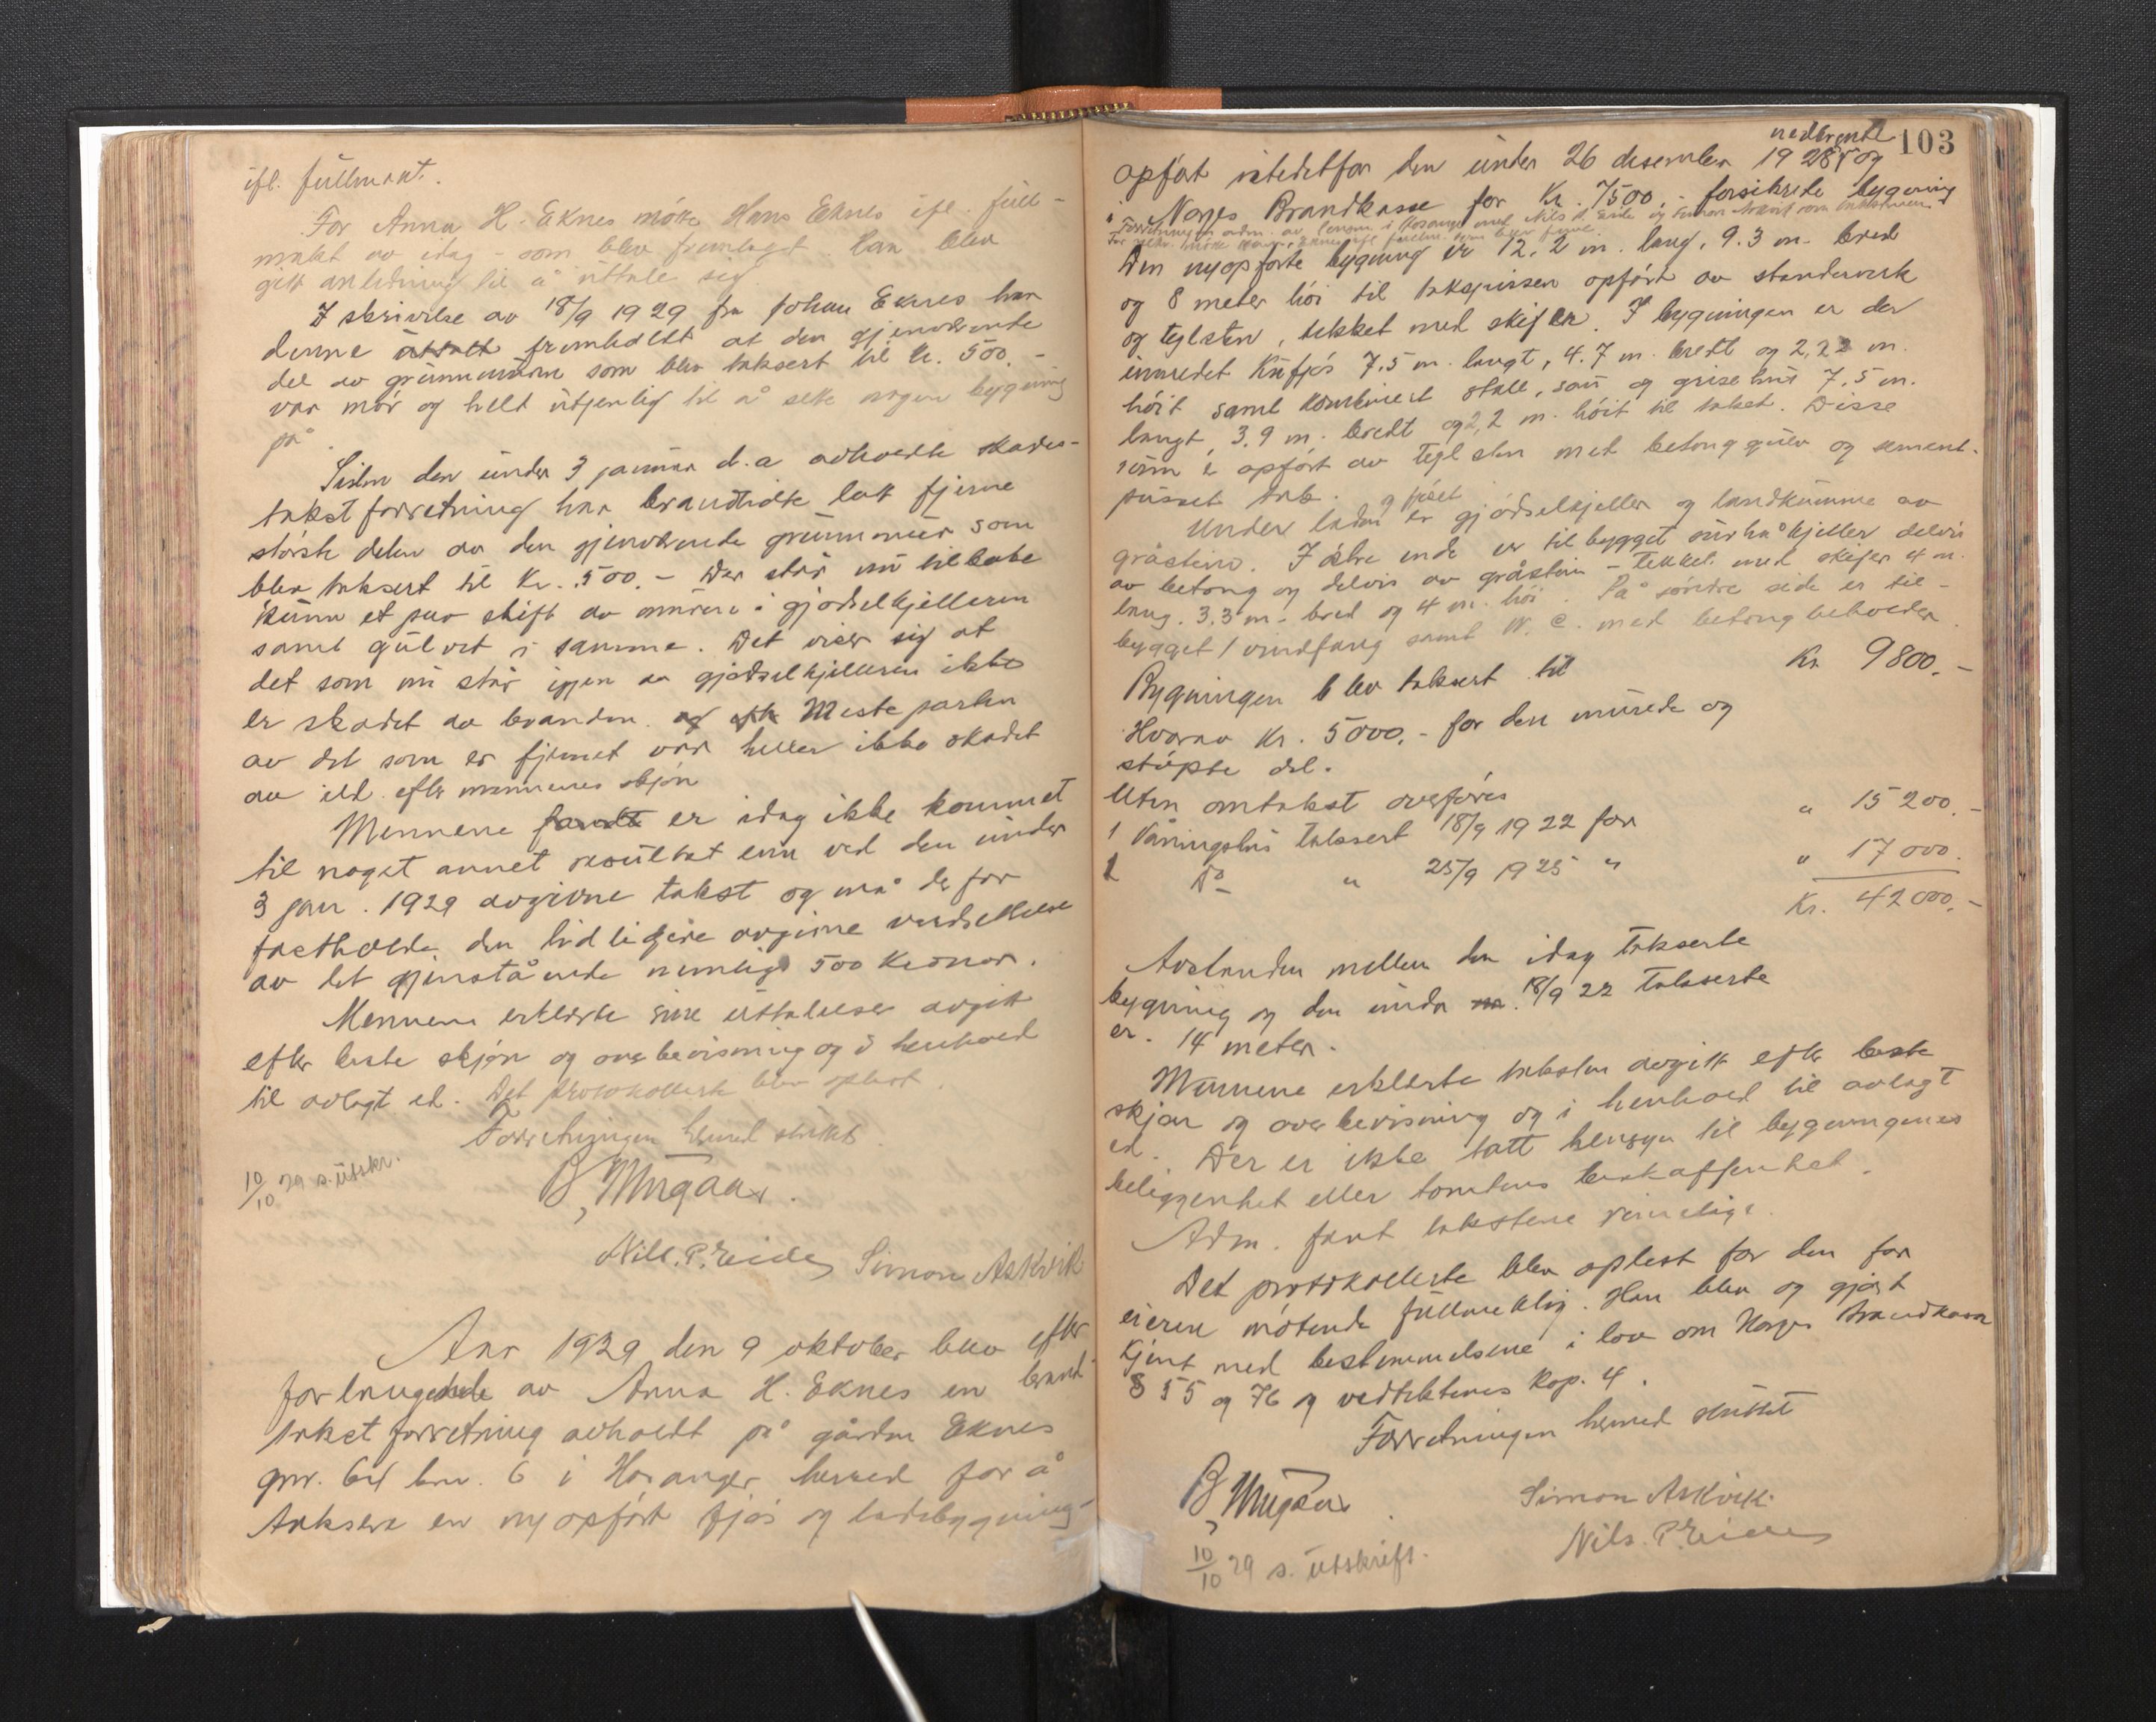 ifl. fullmakt.
For Anna H. Eknes møtte Hans Eknes ifl. full-
makt av idag - som blev fremlagt. Han blev
gitt anledning til å uttale sig.
I skrivelse av 18/9 1929 fra Johan Eknes har
denne uttalt fremholdt at den gjenværende
del av grunnmuren som blev taksert til kr. 500.-
var mør og helt utjenlig til å sette nogen bygning
på.
Siden den under 3 januar d.a avholdte skades-
takstforretning har brandlidte latt fjerne
største delen av den gjenværende grunnmur som
blev taksert til Kr. 500.- Der står nu tilbake
kunn et par skift av muren i gjødselkjelleren
samt gulvet i samme. Det viser sig at
det som nu står igjen av gjødselkjelleren ikke
er skadet av branden. og efter Mesteparten
av det som er fjernet var heller ikke skadet
av ild efter mennenes skjøn
Mennene fandt er idag ikke kommet
til noget annet resultat enn ved den under
3 jan. 1929 avgivne takst og må derfor
fastholde den tidligere avgivne verdsettelse
av det gjenstående nemlig 500 kroner.
Mennene erklærte sine uttalelser avgitt
efter beste skjøn og overbevisning og i henhold
til avlagt ed. Det protokollerte blev oplest.
Forretningen hermed sluttet.
10/10 29 s. utskr.
B. Mugaas.
Nils. P. Eide Simon Askvik
Aar 1929 den 9 oktober blev efter
forlangende av Anna H. Eknes en brand-
takstforretning avholdt på gården Eknes
gnr. 64 bnr. 6 i Hosanger herred for å
taksere en nyopført fjøs og ladebygning-
103
nedbrente
opført istedetfor den under 26 desember 1928 og
i Norges Brandkasse for Kr. 7500.- forsikrede bygning
Forretningen adm. av lensm. i Hosanger med Nils P. Eide og Simon Askvik som takstmenn
For rekv. møtte Hans Eknes ifl. fullm. som blev
Den nyopførte bygning er 12.2 m. lang, 9.3 m. bred
og 8 meter høi til takspissen opført av stenderverk
og teglsten, tekket med skifer. I bygningen er der
innredet Kufjøs 7.5 m. langt, 4.7 m. bredt og 2,22 m.
høit samt kombinert stall, sau og grisehus 7,5 m.
langt, 3.9 m. bredt og 2,2 m. høit til taket. Disse
rum e opført av teglsten med betonggulv og sement-
pusset tak.
og fjøset
Under laden er gjødselkjeller og landkumme av
gråstein. I østre ende er tilbygget surhåkjeller delvis
av betong og delvis av gråstein - tekket med skifer 4 m.
lang. 3.3 m. bred og 4 m. høi. På søndre side er til-
bygget 1 vindfang samt W.C. med betongbeholder.
Bygningen blev taksert til Kr 9800.-
Hvorav Kr. 5000.- for den murede og
støpte del.
Uten omtakst overføres
1 Våningshus taksert 18/9 1922 for " 15200.-
1 Do " 25/9 1925 " " 17000.
Kr. 42000.-
Avstanden mellem den idag takserte
bygning og den under 18/9 22 takserte
er. 14 meter.
Mennene erklærte taksten avgitt efter beste
skjøn og overbevisning og i henhold til avlagt
ed. Der er ikke tatt hensyn til bygningenes
beliggenhet eller tomtens beskaffenhet.
Adm. fant takstene rimelige.
Det protokollerte blev oplest for den for
eieren møtende fullmektig. Han blev og gjort
kjent med bestemmelsene i lov om Norges Brandkasse
§ 55 og 76 og vedtektenes kap. 4.
Forretningen hermed sluttet
B. Mugaas
Simon Askvik
Nils. P. Eide
10/10 29 s. utskrift.